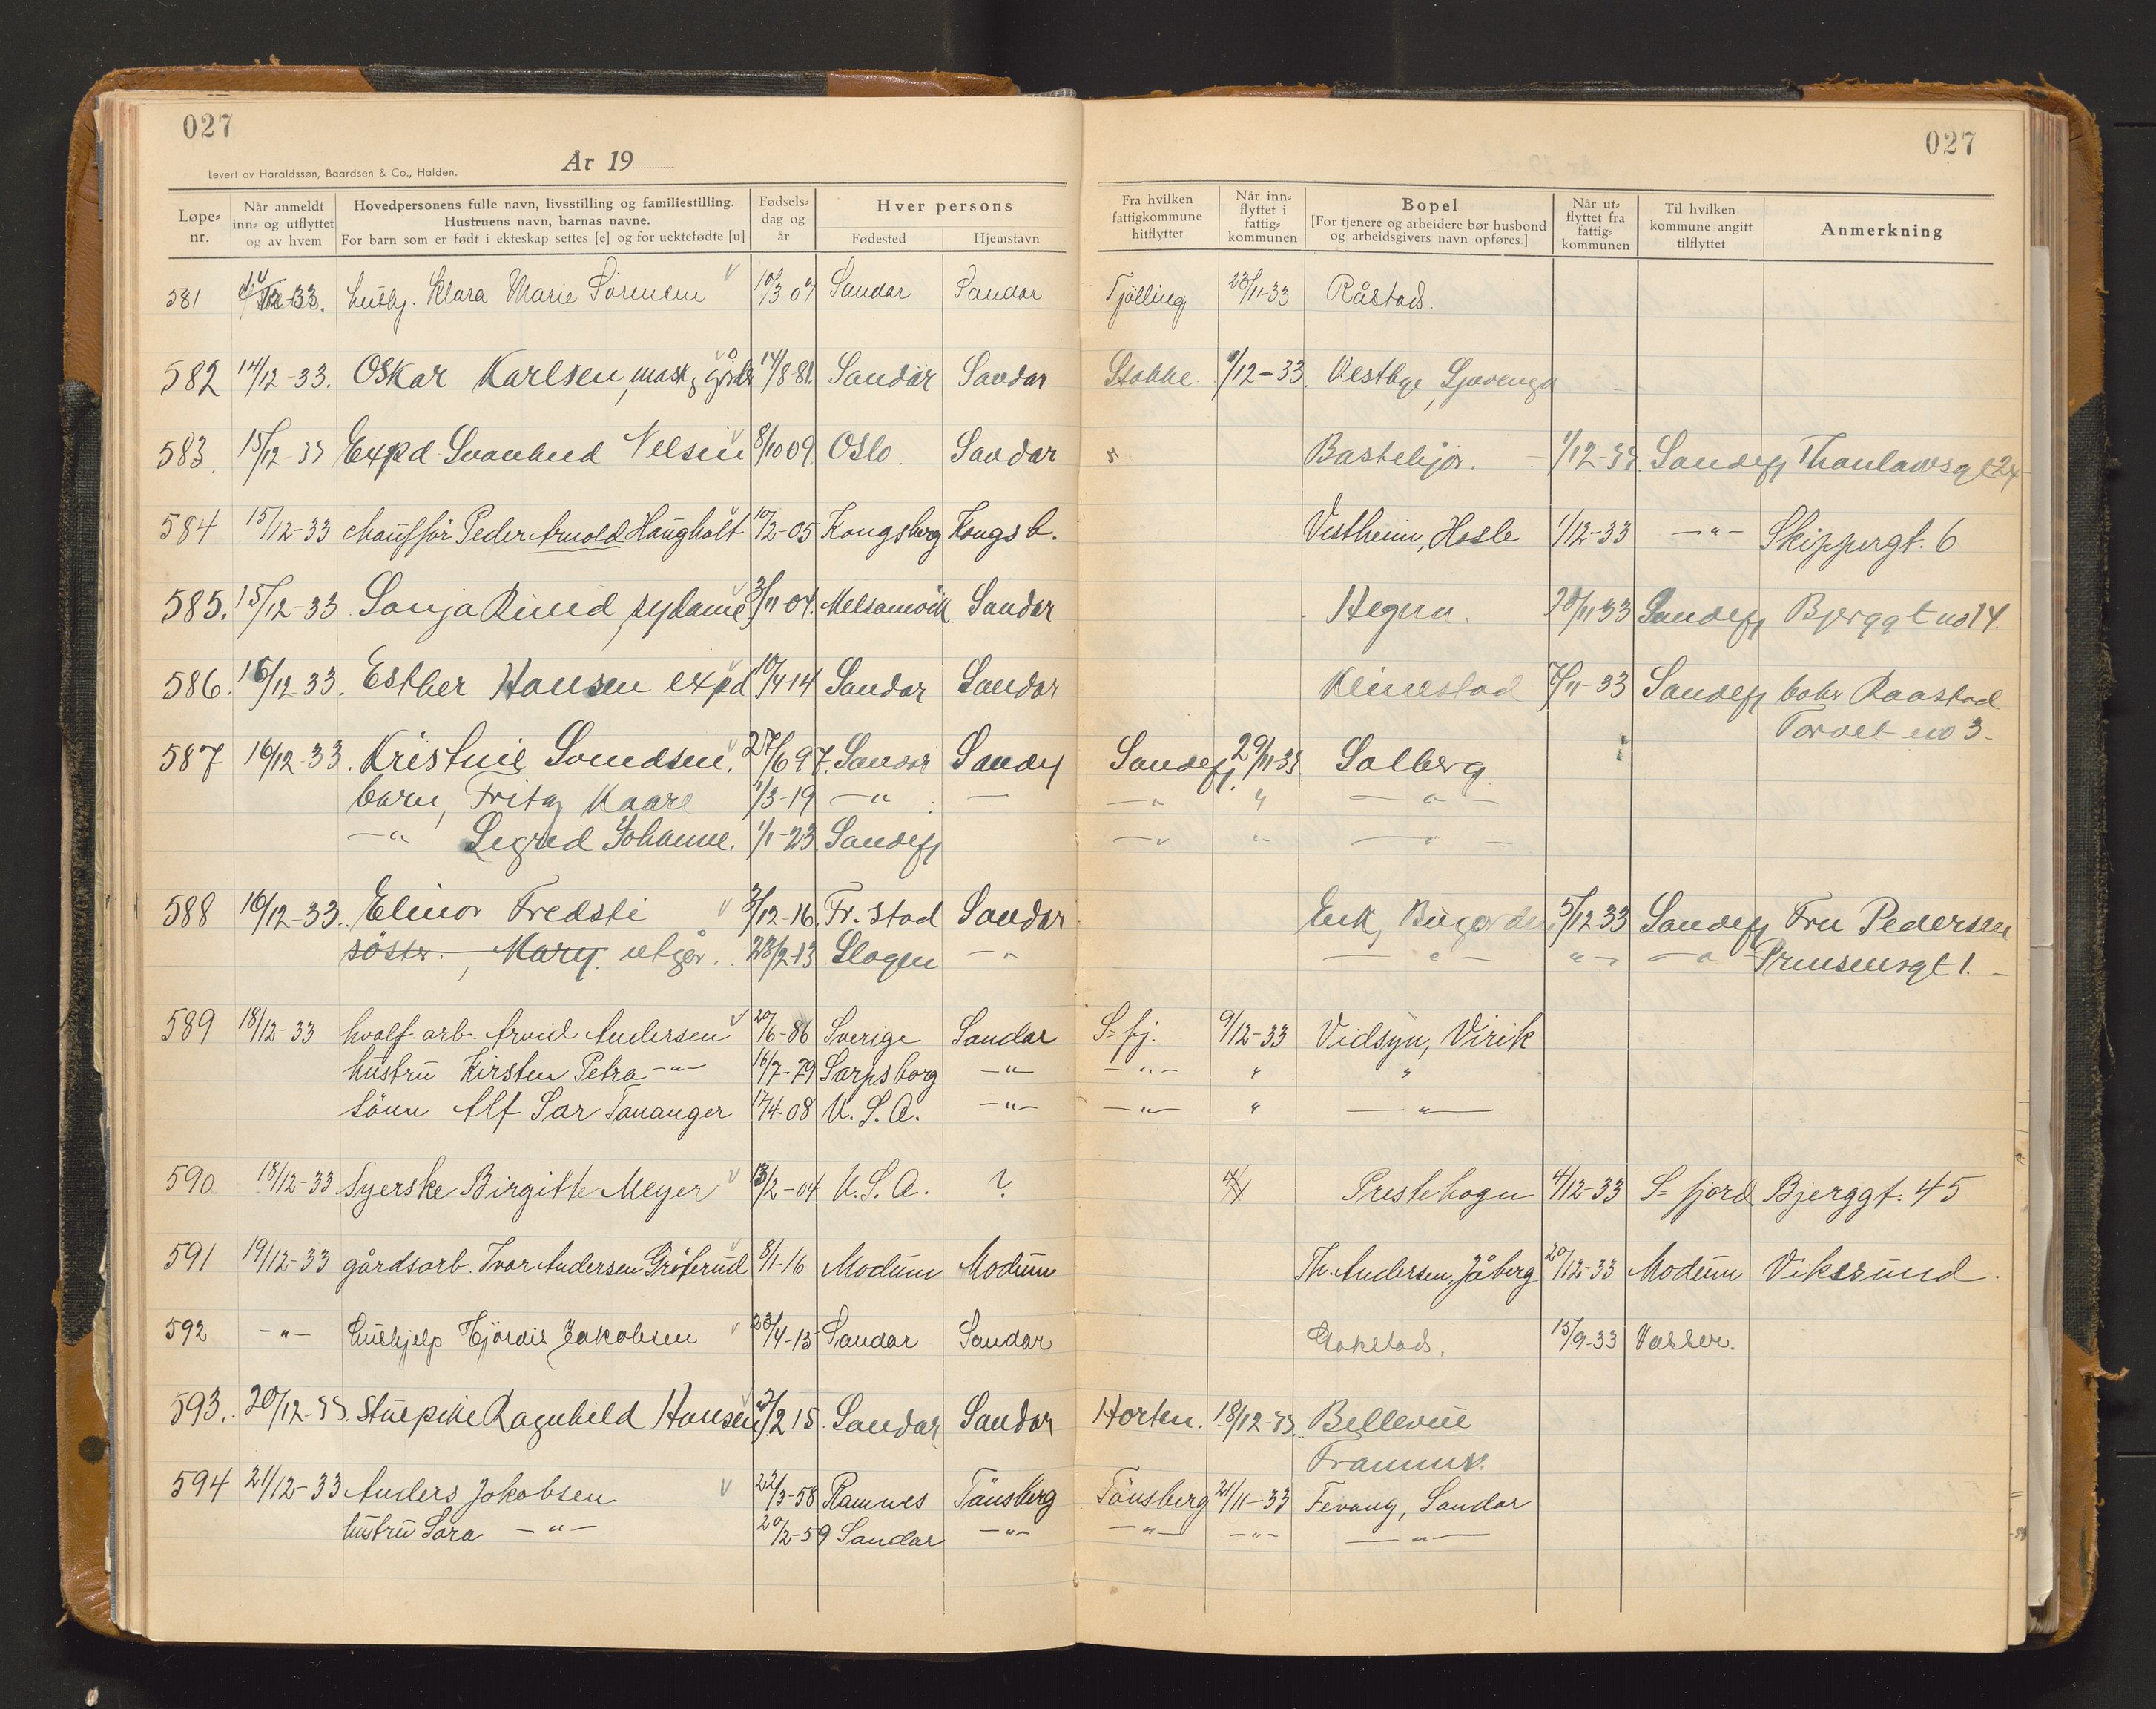 027
År 19
Levert av Haraldssøn, Baardsen & Co., Halden.
027
Løpe-nr. Når anmeldt inn- og utflyttet og av hvem Hovedpersonens fulle navn, livsstilling og familiestilling. Hustruens navn, barnas navne. For barn som er født i ekteskap settes [e] og for uektefødte [u] Fødsels-dag og år Hver persons Fødested Hjemstavn Fra hvilken fattigkommune hitflyttet Når inn-flyttet i fattig-kommunen Bopel [For tjenere og arbeidere bør husbond og arbeidsgivers navn opføres.] Når ut-flyttet fra fattig-kommunen Til hvilken kommune angitt tilflyttet Anmerkning
581 hushj. Klara Marie Sørensen 10/3 07 Sandar Sandar Tjölling 23/11-33 Råstad.
582 14/12-33. Oskar Karlsen, mask. 14/8-81. Sandar Sandar Stokke. 1/12-33. Vestbye,
583. 15/12-33 Expd. Svanhild Nilsen 8/10 09. Oslo. Sandar 1/12-33. Sandefj
584 15/12-33 chauffør Peder Arnold Haugholt 10/2-05 Kongsberg Kongsb. Vestheim, Hasle 1/12-33 -"- Skippergt. 6
585. 15/12-33 Sonja Rund, sydame 3/11 04. Melsomvik Sandar Hegna. 20/11 33 Sandefj Bjerggt no 14.
586. 16/12-33. Esther Hansen expd 10/4-14 Sandar Sandar Klinestad 7/11-33 Sandefj Raastad
Torvet no 3.
587 16/12-33. Kristine Svendsen. 27/6 97. Sandar Sandefj Sandefj. 29/11-33 Solberg
barn, Fritz Kaare 1/3-19 -"- — -"- " -"-
-"- Sigrid Johanne. 1/1-23. Sandefj -"- " -"-
588 16/12-33. Elinor Fredsti 3/12-16. Fr. stad Sandar Eik, Bugården 5/12 33 Sandefj Fru Pedersen
søster. , Mary. utgår. 23/2-13 Slagen -"- -"- "- -"- Prinsensgt 1.
589 18/12-33 hvalf. arb. Arvid Andersen 20/6-86 Sverige Sandar S-fj. 9/12-33 Vidsyn, Virik
hustru Kirsten Petra -"- 16/7-79 Sarpsborg -"- -"- " "
sönn Alf Sar Tananger 17/4-08 U.S.A. -"- -"- " -"-
590 18/12-33 Syerske Birgitte Meyer 13/2-04 U.S.A. ? Prestehagen 4/12-33 S-fjord Bjerggt. 45
591 19/12-33 gårdsarb. Ivar Andersen 8/1-16 Modum Modum Th. Andersen, Jåberg 20/12-33 Modum Vikersund.
592 -"- hushjelp Hjördis Jakobsen 23/4-15 Sandar Sandar Gokstad. 15/9-33 Vasser.
593. 20/12-33. Stuepike Ragnhild Hansen 3/2 15. Sandar Sandar Horten. 18/12-33. Bellevue
Framnes.
594 21/12-33 Anders Jakobsen 22/3-58 Ramnes Tönsberg Tönsberg 21/11-33 Fevang, Sandar
hustru Sara -"- 20/2-59 Sandar -"- -"- -"- -"-